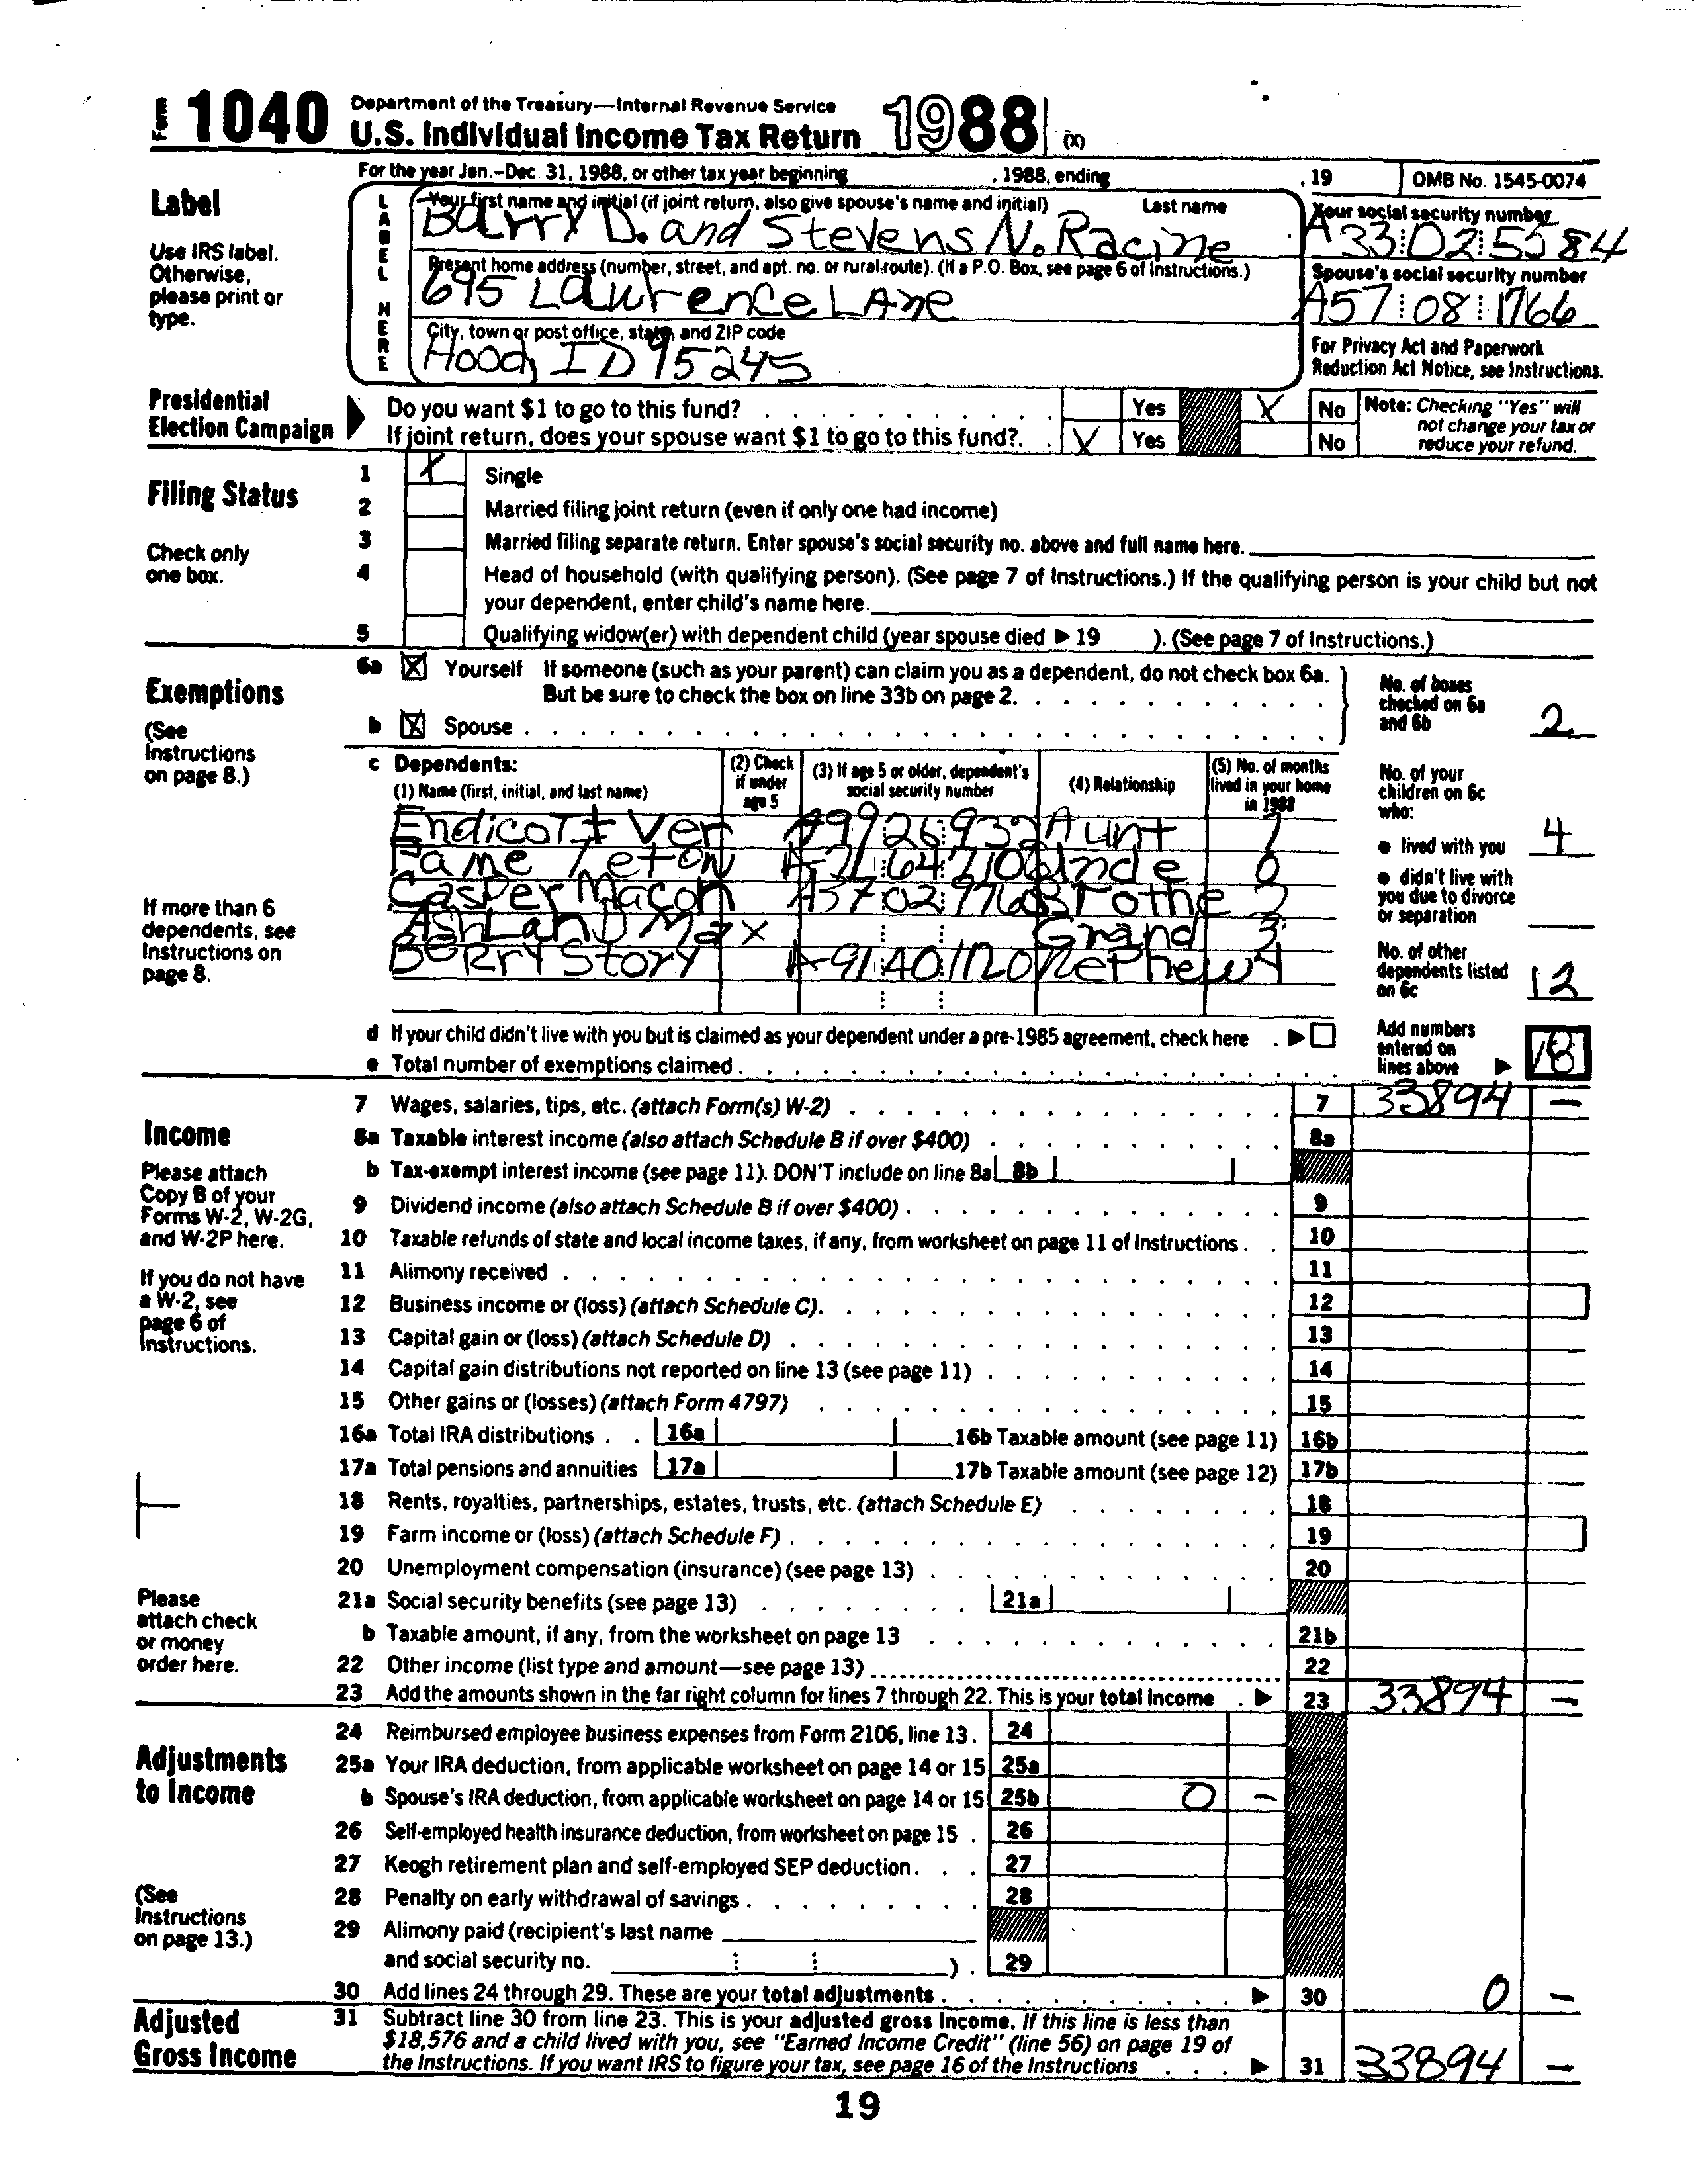 Form 1040 Department of the Treasury—Internal Revenue Service
U.S. Individual Income Tax Return 1988 (X)
For the year Jan.-Dec. 31, 1988, or other tax year beginning , 1988, ending , 19 OMB No. 1545-0074
Label
Use IRS label.
Otherwise,
please print or
type.
LABEL HERE
Your first name and initial (if joint return, also give spouse's name and initial) Last name
Barry D. and Stevens N. Racine
Your social security number
A33 02 5584
Present home address (number, street, and apt. no. or rural route). (If a P.O. Box, see page 6 of Instructions.)
695 Lawrence LAne
Spouse's social security number
A57 08 1766
City, town or post office, state, and ZIP code
Hood, ID 95245
For Privacy Act and Paperwork
Reduction Act Notice, see Instructions.
Presidential
Election Campaign
Do you want $1 to go to this fund? Yes X No
If joint return, does your spouse want $1 to go to this fund? X Yes No
Note: Checking "Yes" will
not change your tax or
reduce your refund.
Filing Status
Check only
one box.
1 X Single
2 Married filing joint return (even if only one had income)
3 Married filing separate return. Enter spouse's social security no. above and full name here.
4 Head of household (with qualifying person). (See page 7 of Instructions.) If the qualifying person is your child but not
your dependent, enter child's name here.
5 Qualifying widow(er) with dependent child (year spouse died ▶ 19 ). (See page 7 of Instructions.)
Exemptions
(See
Instructions
on page 8.)
6a X Yourself If someone (such as your parent) can claim you as a dependent, do not check box 6a.
But be sure to check the box on line 33b on page 2.
b X Spouse
No. of boxes
checked on 6a
and 6b 2
c Dependents:
(1) Name (first, initial, and last name)
(2) Check
if under
age 5
(3) If age 5 or older, dependent's
social security number
(4) Relationship
(5) No. of months
lived in your home
in 1988
Endicott Ver A99 26 932 Aunt
Fame Teton 0
Casper Macon A37 02 9760 Brothe
Ashland Max Grand 3
Berry Story A91 40 1120 Nephew
If more than 6
dependents, see
Instructions on
page 8.
No. of your
children on 6c
who:
● lived with you 4
● didn't live with
you due to divorce
or separation
No. of other
dependents listed
on 6c 12
d If your child didn't live with you but is claimed as your dependent under a pre-1985 agreement, check here ▶
e Total number of exemptions claimed
Add numbers
entered on
lines above ▶ 18
Income
Please attach
Copy B of your
Forms W-2, W-2G,
and W-2P here.
If you do not have
a W-2, see
page 6 of
Instructions.
Please
attach check
or money
order here.
7 Wages, salaries, tips, etc. (attach Form(s) W-2) 7 33894 –
8a Taxable interest income (also attach Schedule B if over $400) 8a
b Tax-exempt interest income (see page 11). DON'T include on line 8a 8b
9 Dividend income (also attach Schedule B if over $400) 9
10 Taxable refunds of state and local income taxes, if any, from worksheet on page 11 of Instructions 10
11 Alimony received 11
12 Business income or (loss) (attach Schedule C) 12
13 Capital gain or (loss) (attach Schedule D) 13
14 Capital gain distributions not reported on line 13 (see page 11) 14
15 Other gains or (losses) (attach Form 4797) 15
16a Total IRA distributions 16a 16b Taxable amount (see page 11) 16b
17a Total pensions and annuities 17a 17b Taxable amount (see page 12) 17b
18 Rents, royalties, partnerships, estates, trusts, etc. (attach Schedule E) 18
19 Farm income or (loss) (attach Schedule F) 19
20 Unemployment compensation (insurance) (see page 13) 20
21a Social security benefits (see page 13) 21a
b Taxable amount, if any, from the worksheet on page 13 21b
22 Other income (list type and amount—see page 13) 22
23 Add the amounts shown in the far right column for lines 7 through 22. This is your total income ▶ 23 33894 –
Adjustments
to Income
(See
Instructions
on page 13.)
24 Reimbursed employee business expenses from Form 2106, line 13. 24
25a Your IRA deduction, from applicable worksheet on page 14 or 15 25a
b Spouse's IRA deduction, from applicable worksheet on page 14 or 15 25b 0 –
26 Self-employed health insurance deduction, from worksheet on page 15 26
27 Keogh retirement plan and self-employed SEP deduction 27
28 Penalty on early withdrawal of savings 28
29 Alimony paid (recipient's last name
and social security no. ) 29
30 Add lines 24 through 29. These are your total adjustments ▶ 30 0 –
Adjusted
Gross Income
31 Subtract line 30 from line 23. This is your adjusted gross income. If this line is less than
$18,576 and a child lived with you, see "Earned Income Credit" (line 56) on page 19 of
the Instructions. If you want IRS to figure your tax, see page 16 of the Instructions ▶ 31 33894 –
19